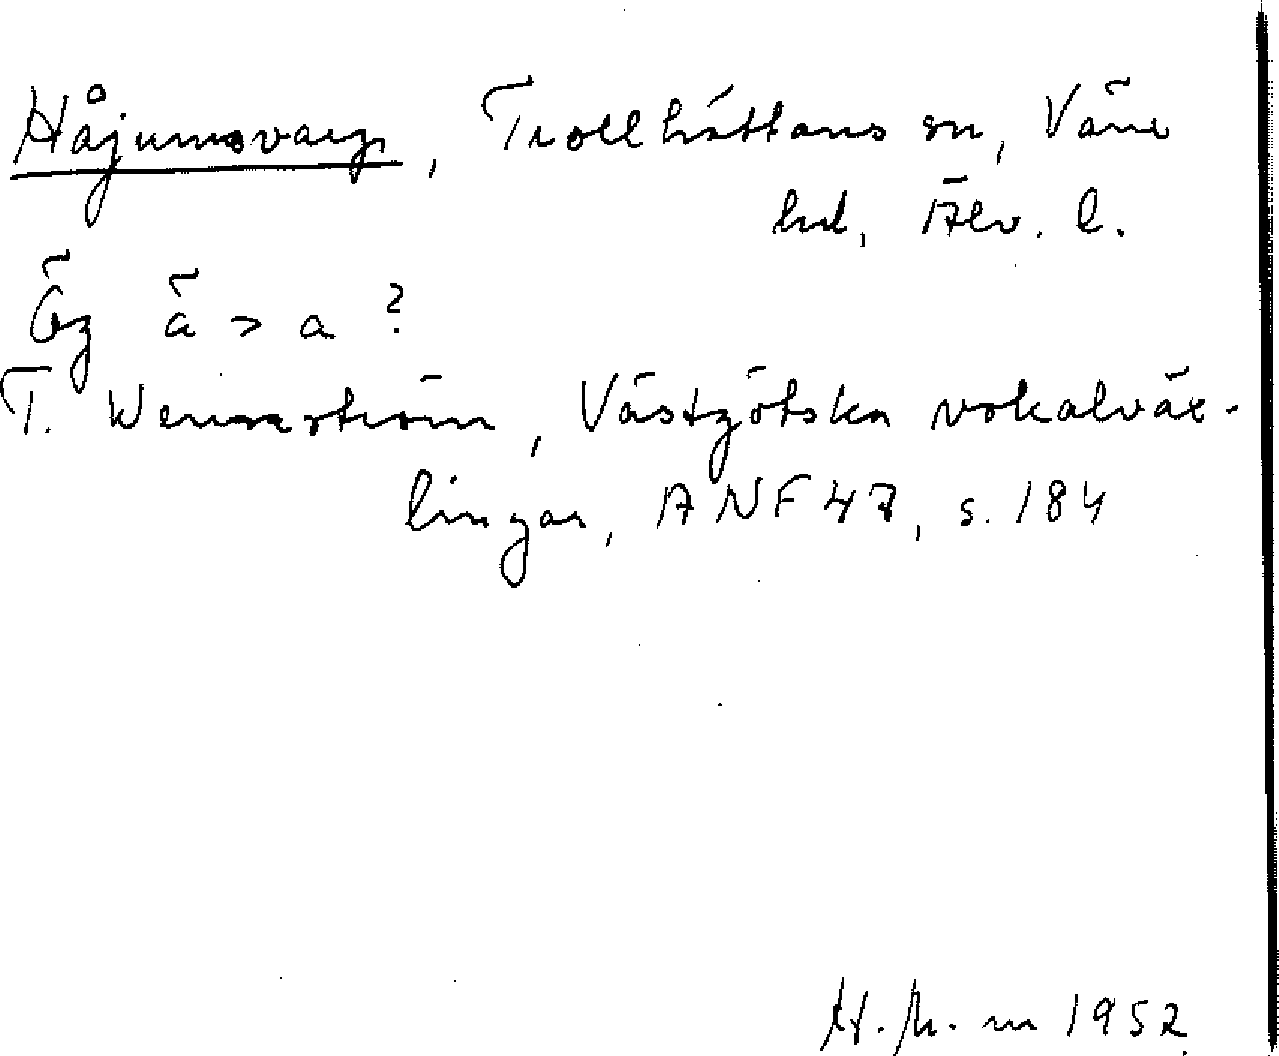 Håjumsvarp, Trollhättans sn, Väne
hd, Älv. l.
Ög ä > a ?
T. Wennström, Västgötska vokalväx-
lingar, ANF 47, s. 184
H. M. m 1952